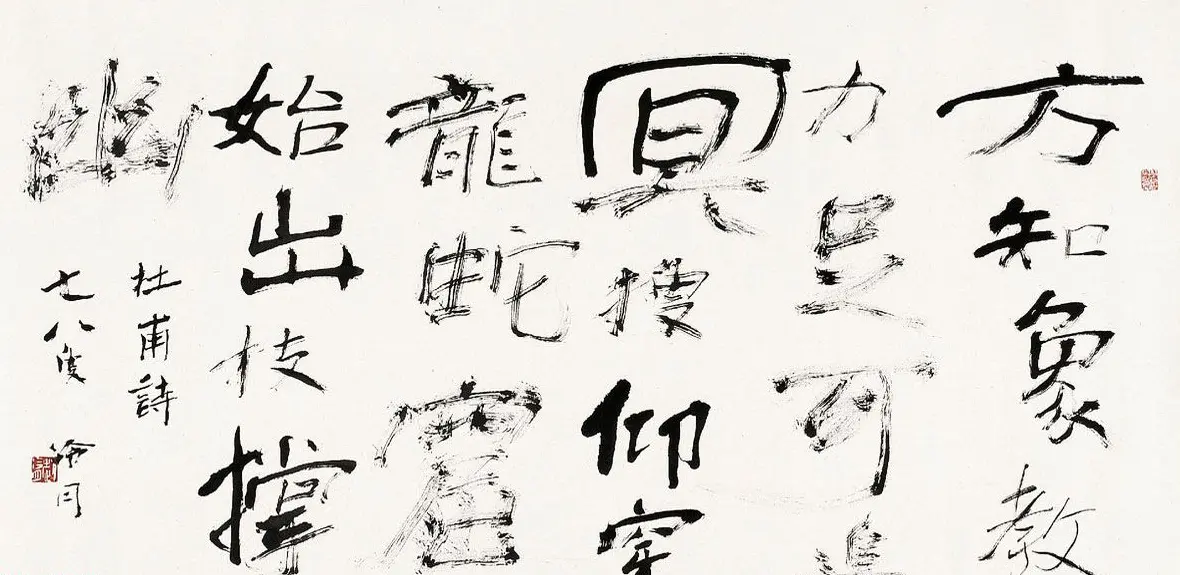 方知象教
力足可追
冥搜仰穿
龍蛇窟
始出枝撐
幽
杜甫詩
七八叟